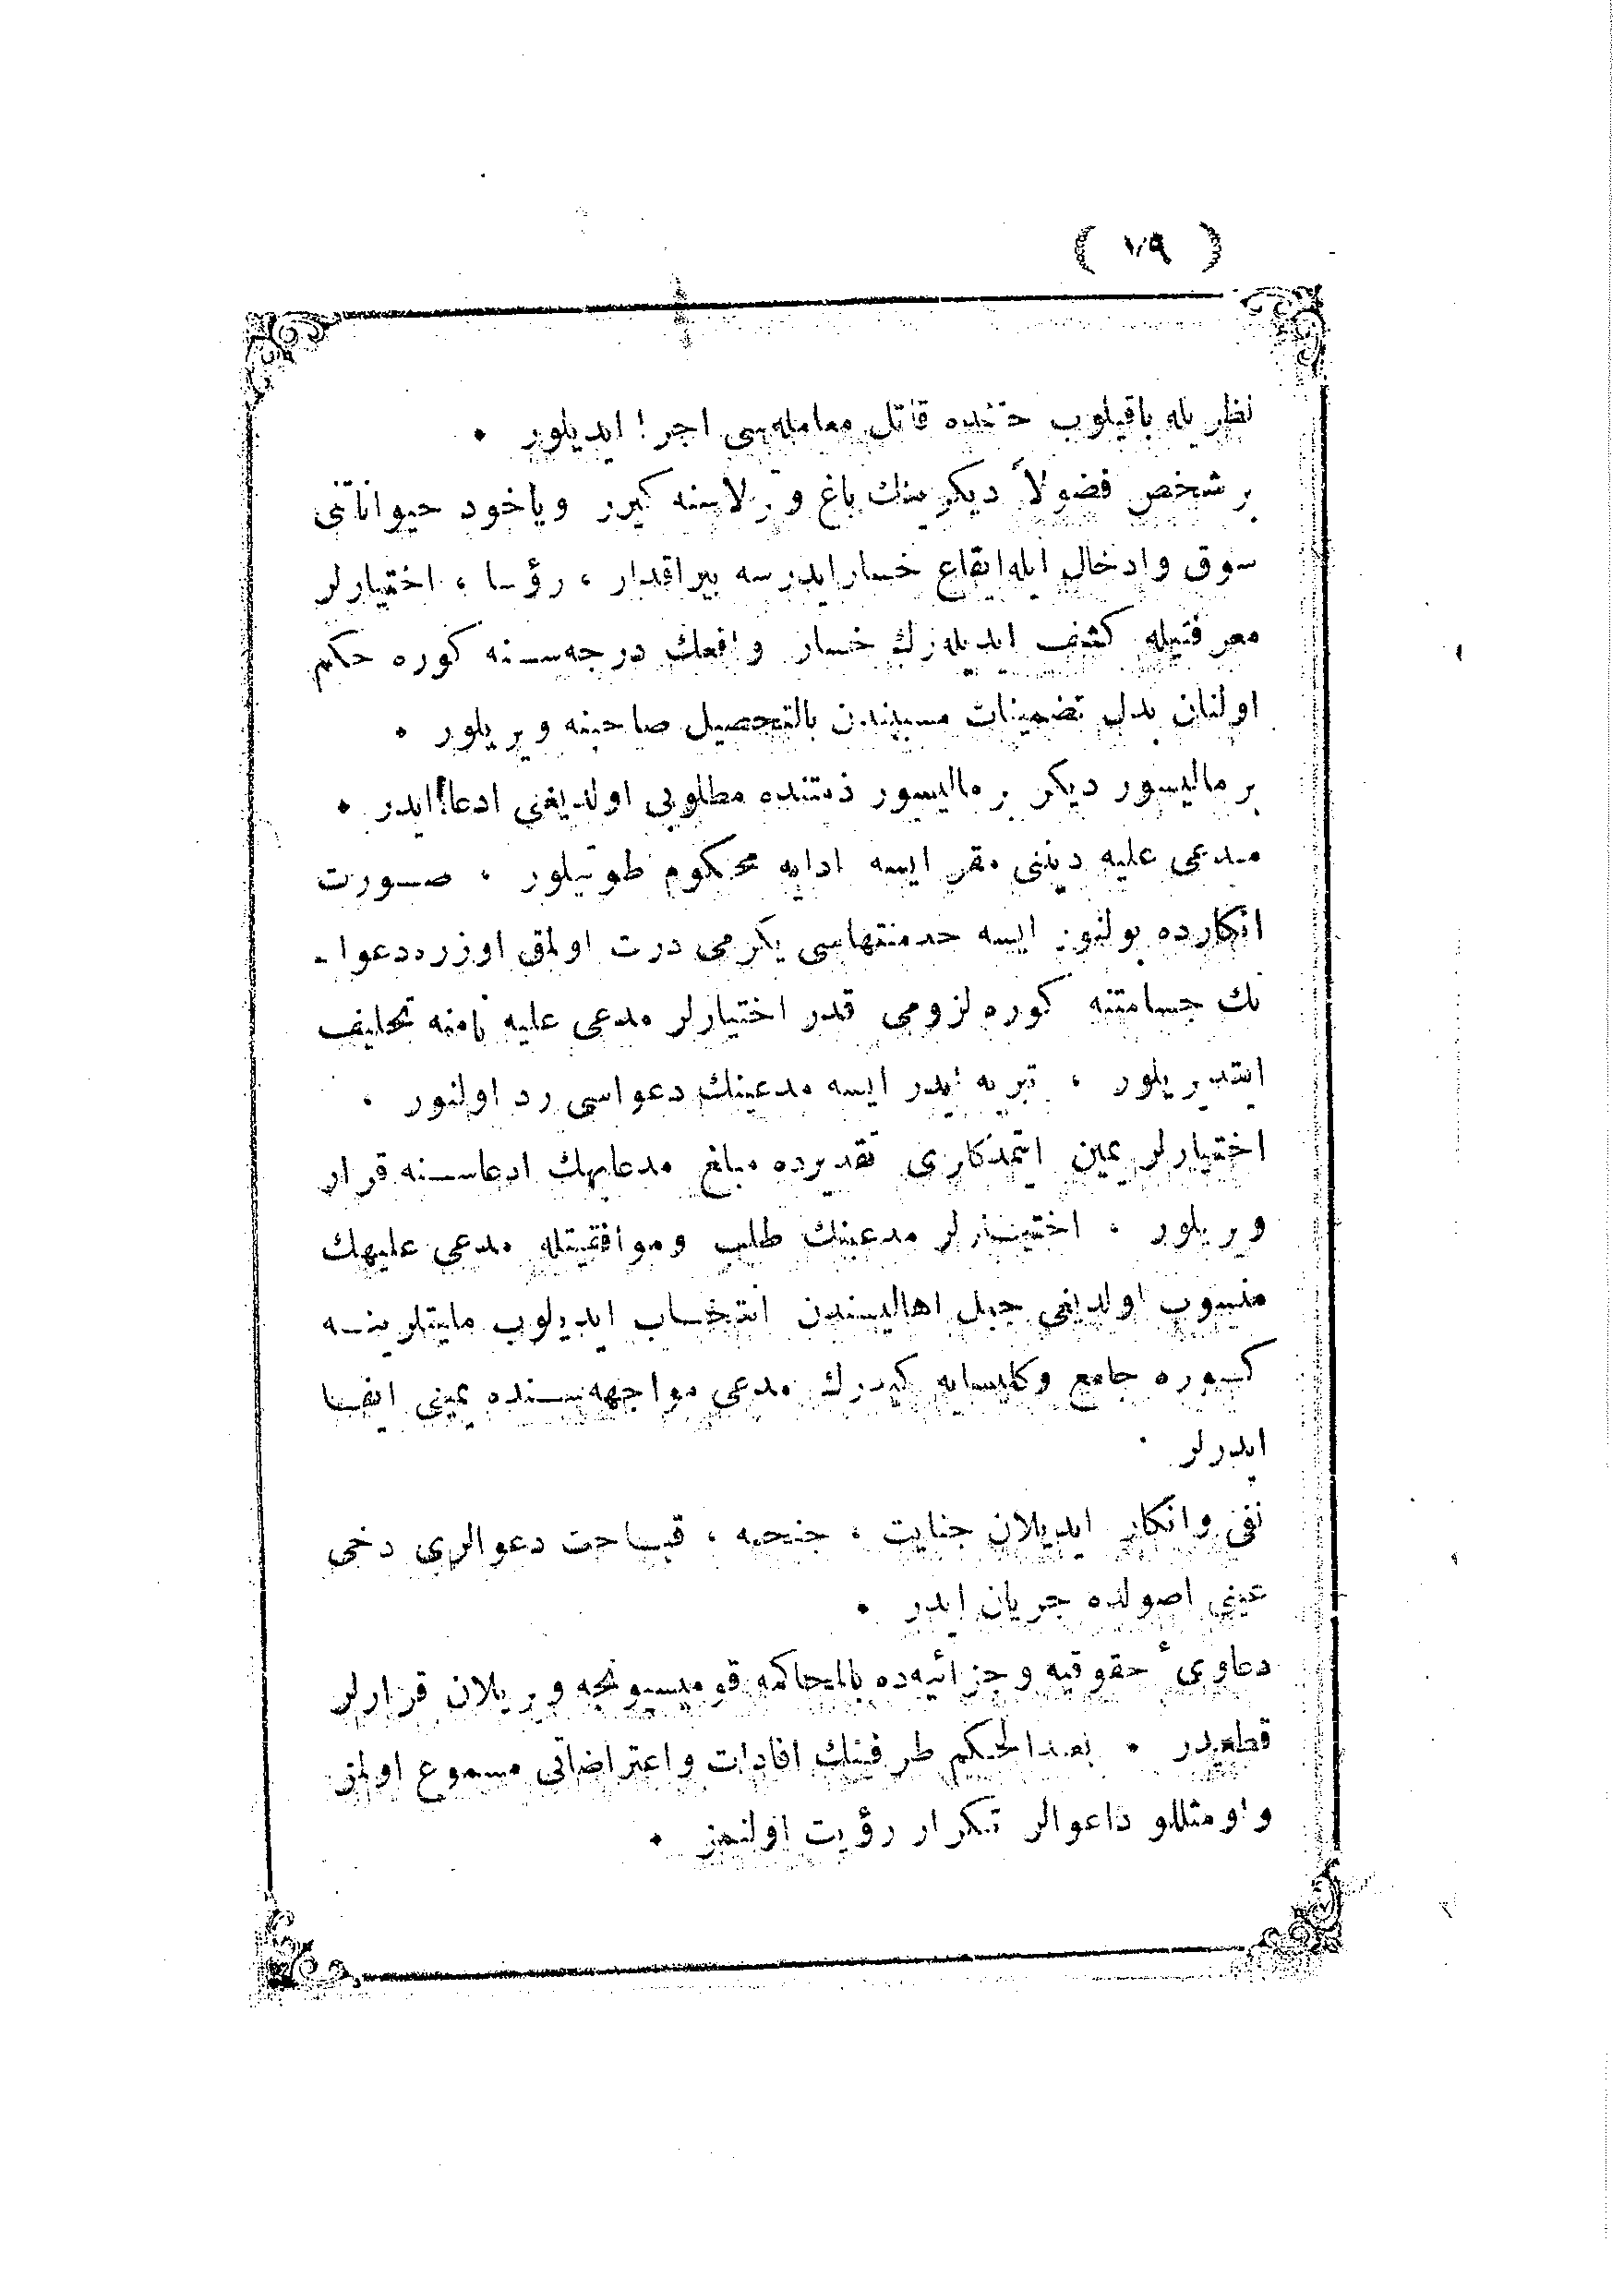 ( ١٧٩ )
نظريله باقيلوب حقنده قاتل معامله‌سی اجرا ايديلور .
بر شخص فضولاً ديكرينك باغ و ترلاسنه كيرر وياخود حيواناتنی
سوق وادخال ايله ايقاع خسار ايدرسه بيراقدار ، رؤسا ، اختيارلر
معرفتيله كشف ايديله‌رك خسار واقعك درجه‌سنه كوره حكم
اولنان بدل تضمينات مسببندن بالتحصيل صاحبنه ويريلور .
بر ماليسور ديكر بر ماليسور ذمتنده مطلوبی اولديغنی ادعا ايدر .
مدعی عليه دينی مقر ايسه ادايه محكوم طوتيلور . صورت
انكارده بولنور ايسه حدمنتهاسی يكرمی درت اولمق اوزره دعوا ـ
نك جسامتنه كوره لزومی قدر اختيارلر مدعی عليه نامنه تحليف
ايتديريلور . تبريه ايدر ايسه مدعينك دعواسی رد اولنور .
اختيارلر يمين ايتمدكلری تقديرده مبلغ مدعابهك ادعاسنه قرار
ويريلور . اختيارلر مدعينك طلب وموافقتيله مدعی عليهك
منسوب اولديغی جبل اهاليسندن انتخاب ايديلوب مليتلرينه
كوره جامع وكليسايه كيدرك مدعی مواجهه‌سنده يمينی ايفا
ايدرلر .
نفی وانكار ايديلان جنايت ، جنحه ، قباحت دعوالری دخی
عينی اصولده جريان ايدر .
دعاوی‌ٔ حقوقيه وجزائيه‌ده بالمحاكمه قوميسيونجه ويريلان قرارلر
قطعيدر . بعدالحكم طرفينك افادات واعتراضاتی مسموع اولمز
واومثللو داعوالر تكرار رؤيت اولنمز .